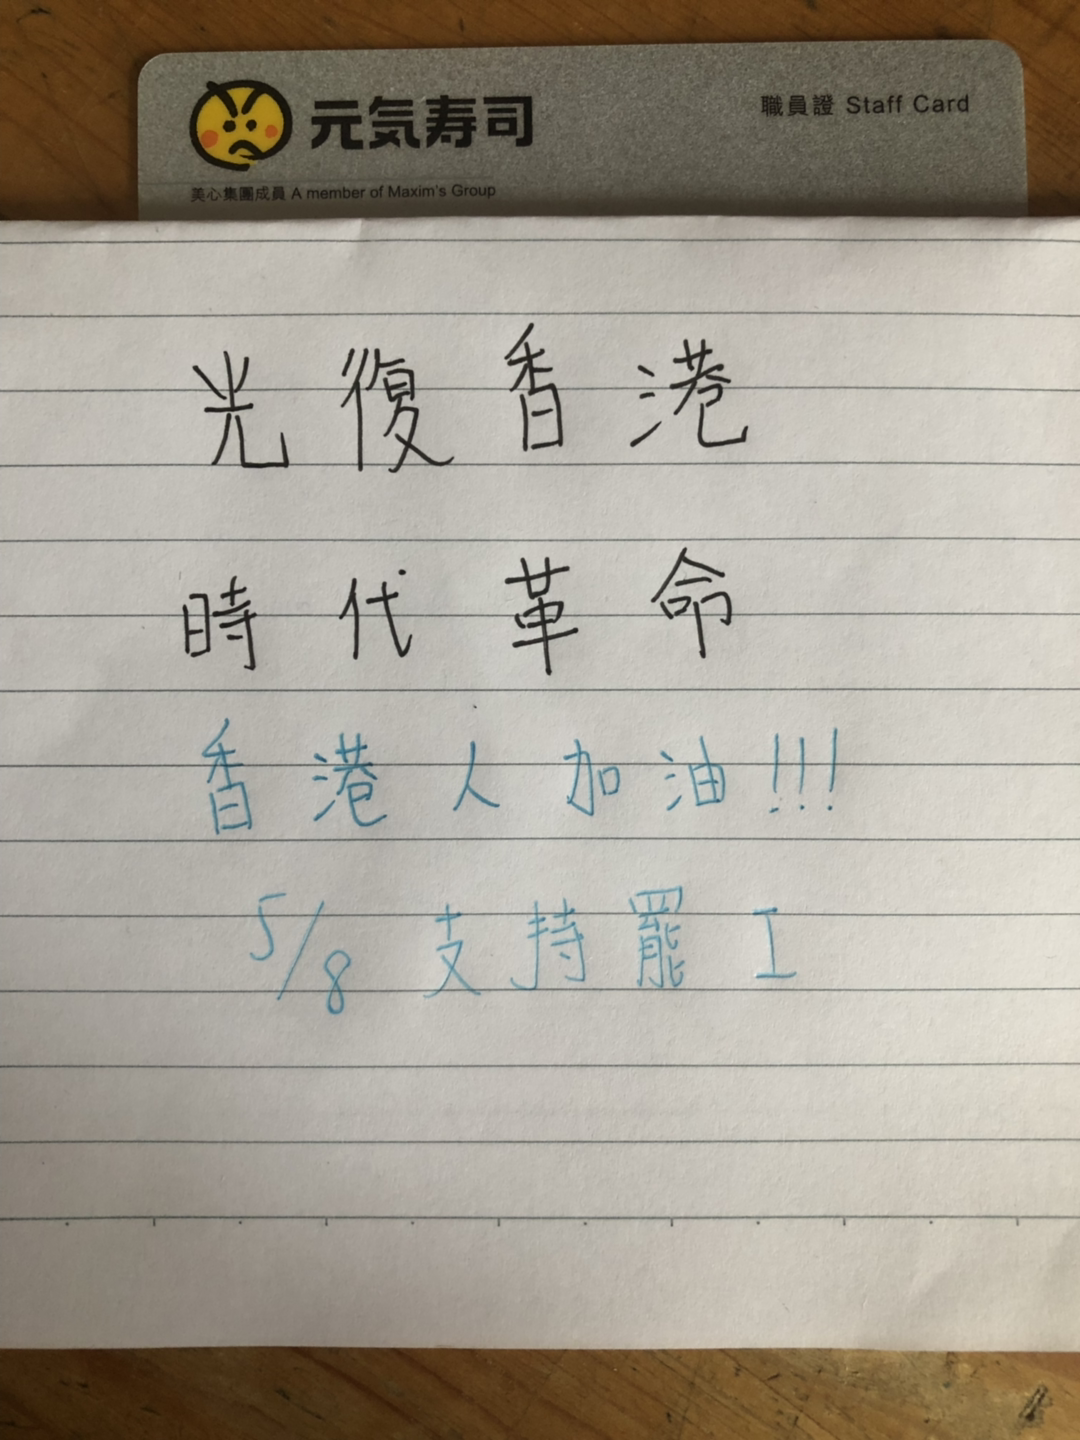 元気寿司
職員證 Staff Card
美心集團成員 A member of Maxim's Group
光復香港
時代革命
香港人加油!!!
5/8 支持罷工